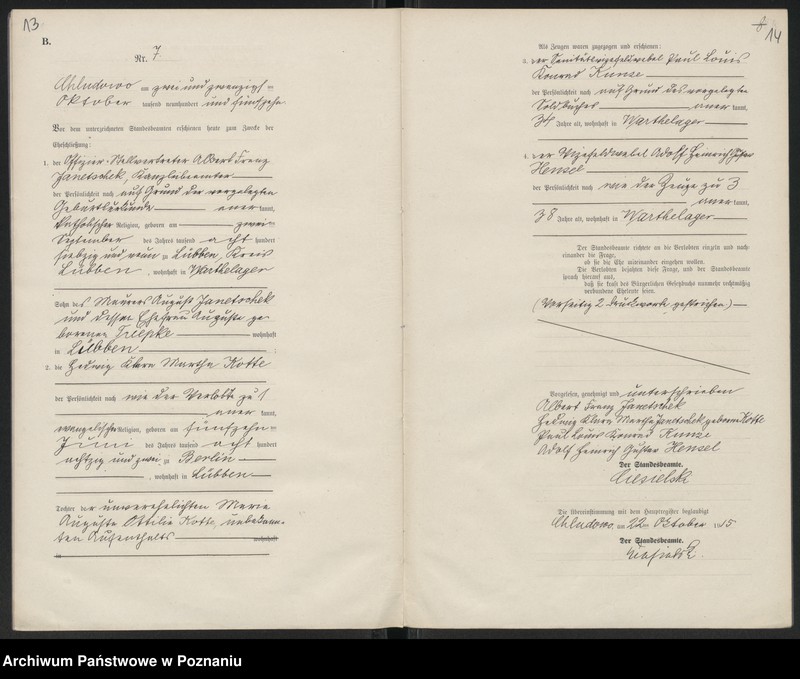 13
B.
Nr. 7
Chludowo am zwei und zwanzigsten
Oktober tausend neunhundert und fünfzehn
Vor dem unterzeichneten Standesbeamten erschienen heute zum Zwecke der
Eheschließung:
1. der Offizier-Stellvertreter Albert Franz
Janetschek, Kanzleibeamter
der Persönlichkeit nach auf Grund der vorgelegten
Geburtsurkunde anerkannt,
katholischer Religion, geboren am zwei-
September des Jahres tausend acht hundert
siebzig und neun zu Lübben, Kreis
Lübben, wohnhaft in Warthelager
Sohn des Maurers August Janetschek
und dessen Ehefrau Auguste ge-
borenen wohnhaft
in Lübben
2. die Hedwig Klara Martha Kotte
der Persönlichkeit nach wie der Verlobte zu 1
anerkannt,
evangelischer Religion, geboren am fünfzehn-
Juni des Jahres tausend acht hundert
achtzig und zwei zu Berlin
, wohnhaft in Lübben
Tochter der unverehelichten Marie
Auguste Ottilie Kotte, unbekann-
ten Aufenthalts wohnhaft
in
14
Als Zeugen waren zugezogen und erschienen:
3. der Sanitätsvizefeldwebel Paul Louis
Konrad Kunze
der Persönlichkeit nach auf Grund des vorgelegten
Soldbuches anerkannt,
34 Jahre alt, wohnhaft in Warthelager
4. der Vizefeldwebel Adolf Heinrich Gustav
Hensel
der Persönlichkeit nach wie der Zeuge zu 3
anerkannt,
38 Jahre alt, wohnhaft in Warthelager
Der Standesbeamte richtete an die Verlobten einzeln und nach-
einander die Frage,
ob sie die Ehe miteinander eingehen wollen.
Die Verlobten bejahten diese Frage, und der Standesbeamte
sprach hierauf aus,
daß sie kraft des Bürgerlichen Gesetzbuchs nunmehr rechtmäßig
verbundene Eheleute seien.
(Vorseitig 2 Druckworte gestrichen)
Vorgelesen, genehmigt und unterschrieben
Albert Franz Janetschek
Hedwig Klara Martha Janetschek geborene Kotte
Paul Louis Konrad Kunze
Adolf Heinrich Gustav Hensel
Der Standesbeamte.
Ciesielski
Die Übereinstimmung mit dem Hauptregister beglaubigt
Chludowo, am 22ten Oktober 1915
Der Standesbeamte.
Ciesielski
Archiwum Państwowe w Poznaniu